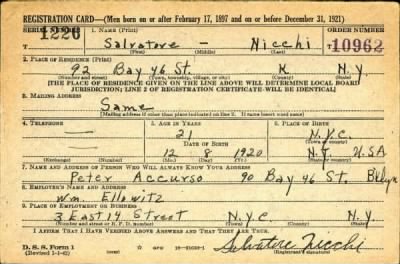 REGISTRATION CARD—(Men born on or after February 17, 1897 and on or before December 31, 1921)
SERIAL NUMBER 1. NAME (Print) ORDER NUMBER
1220 Salvatore — Nicchi 10962
(First) (Middle) (Last)
2. PLACE OF RESIDENCE (Print)
92 Bay 46 St. K N.Y.
(Number and street) (Town, township, village, or city) (County) (State)
[THE PLACE OF RESIDENCE GIVEN ON THE LINE ABOVE WILL DETERMINE LOCAL BOARD
JURISDICTION; LINE 2 OF REGISTRATION CERTIFICATE WILL BE IDENTICAL]
3. MAILING ADDRESS
Same
[Mailing address if other than place indicated on line 2. If same insert word same]
4. TELEPHONE 5. AGE IN YEARS 6. PLACE OF BIRTH
— 21 N.Y.C.
DATE OF BIRTH (Town or county)
— 12 8 1920 N.Y. USA
(Exchange) (Number) (Mo.) (Day) (Yr.) (State or country)
7. NAME AND ADDRESS OF PERSON WHO WILL ALWAYS KNOW YOUR ADDRESS
Peter Accurso 90 Bay 46 St. Bklyn
8. EMPLOYER'S NAME AND ADDRESS
Wm. Ellowitz
9. PLACE OF EMPLOYMENT OR BUSINESS
3 East 14 Street N.Y.C. N.Y.
(Number and street or R. F. D. number) (Town) (County) (State)
I AFFIRM THAT I HAVE VERIFIED ABOVE ANSWERS AND THAT THEY ARE TRUE.
D. S. S. Form 1
(Revised 1-1-42) (over) Salvatore Nicchi
(Registrant's signature)